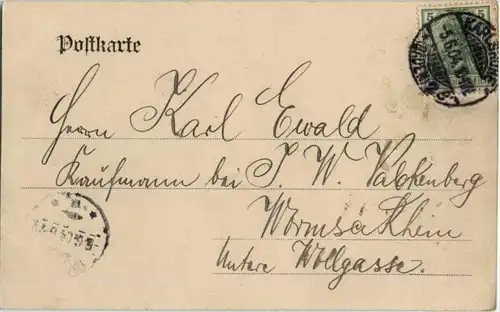 Postkarte
5 5
KARLSRUHE
5.6.04.
Herrn Karl Ewald
Kaufmann bei J. W. Valckenberg
Worms a Rhein
Untere Wollgasse.